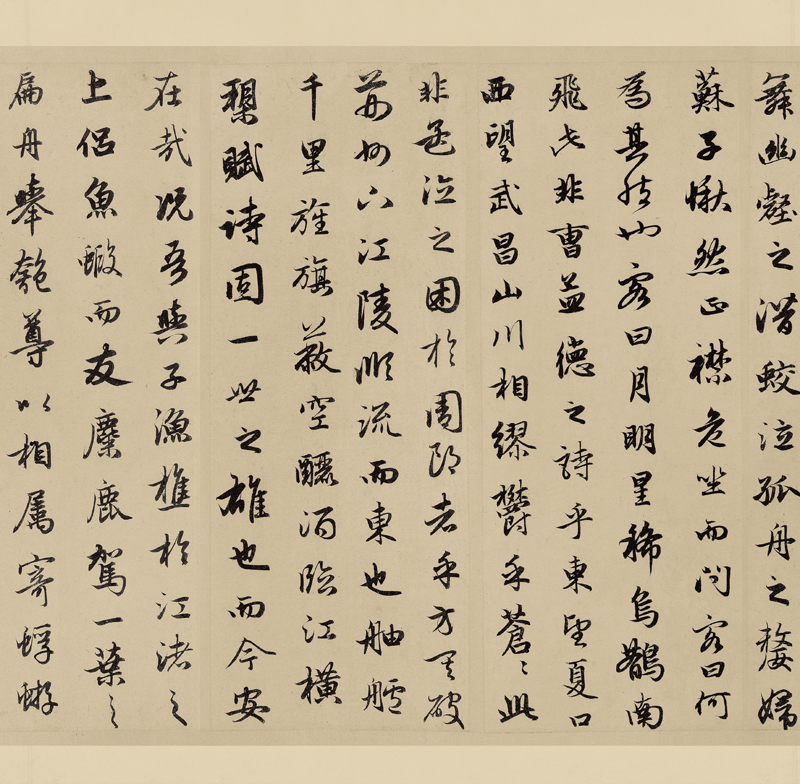 舞幽壑之潛蛟泣孤舟之嫠婦
蘇子愀然正襟危坐而问客曰何
為其然也客曰月明星稀烏鵲南
飛此非曹孟德之詩乎東望夏口
西望武昌山川相繆欝乎蒼〻此
非孟德之困於周郎者乎方其破
荊州下江陵順流而東也舳艫
千里旌旗蔽空釃酒臨江橫
槊賦詩固一世之雄也而今安
在哉況吾與子漁樵於江渚之
上侶魚蝦而友麋鹿駕一葉之
扁舟舉匏尊以相属寄蜉蝣